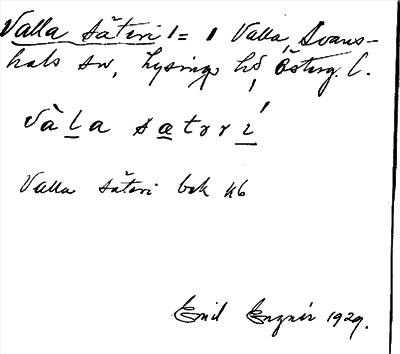 Valla säteri 1 = 1 Valla, Svans-
hals sn, Lysings hd, Österg. l.
và l a s æ t r r í
Valla säteri bok 46
Emil 1929.